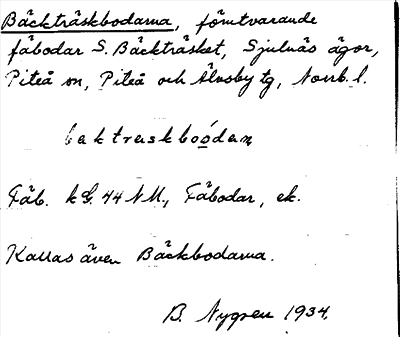 Bäckträskbodarna, förutvarande
fäbodar S. Bäckträsket, Sjulnäs ägor,
Piteå sn, Piteå och Älvsby tg, Norrb. l.
bektraskboodan
Fäb. kG. 44 NU., Fäbodar, ek.
Kallas även Bäckbodarna.
B. Nygren 1934.